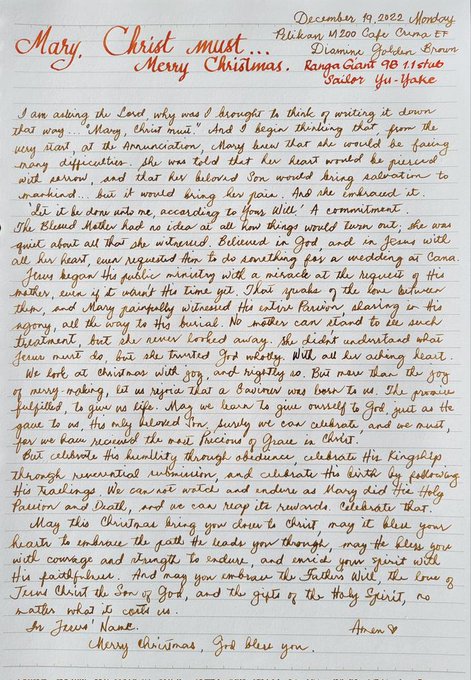 December 19, 2022 Monday
Pelikan M200 Cafe Crema EF
Diamine Golden Brown
Mary, Christ must...
Merry Christmas.
Ranga Giant 9B 1.1 stub
Sailor Yu-Yake
I am asking the Lord, why was I brought to think of writing it down
that way... "Mary, Christ must." And I begin thinking that, from the
very start, at the Annunciation, Mary knew that she would be facing
many difficulties. She was told that her heart would be pierced
with sorrow, and that her beloved Son would bring salvation to
mankind... but it would bring her pain. And she embraced it.
'Let it be done unto me, according to Your Will.' A commitment.
The Blessed Mother had no idea at all how things would turn out, she was
quiet about all that she witnessed. Believed in God, and in Jesus with
all her heart, even requested Him to do something for a wedding at Cana.
Jesus began His public ministry with a miracle at the request of His
mother, even if it wasn't His time yet. That speaks of the love between
them, and Mary painfully witnessed His entire Passion, sharing in His
agony, all the way to His burial. No mother can stand to see such
treatment, but she never looked away. She didn't understand what
Jesus must do, but she trusted God wholly. With all her aching heart.
We look at Christmas with joy, and rightly so. But more than the joy
of merry-making, let us rejoice that a Saviour was born to us. The promise
fulfilled, to give us life. May we learn to give ourself to God, just as He
gave to us, His only beloved Son. Surely we can celebrate, and we must,
for we have received the most Precious of Grace in Christ.
But celebrate His humility through obedience, celebrate His Kingship
through reverential submission, and celebrate His birth by following
His teachings. We can not watch and endure as Mary did His Holy
Passion and Death, and we can reap its rewards. Celebrate that.
May this Christmas bring you closer to Christ, may it bless your
hearts to embrace the path He leads you through, may He bless you
with courage and strength to endure, and enrich your spirit with
His faithfulness. And may you embrace the Father's Will, the love of
Jesus Christ the Son of God, and the gifts of the Holy Spirit, no
matter what it costs us.
In Jesus' Name. Amen ♡
Merry Christmas, God bless you.